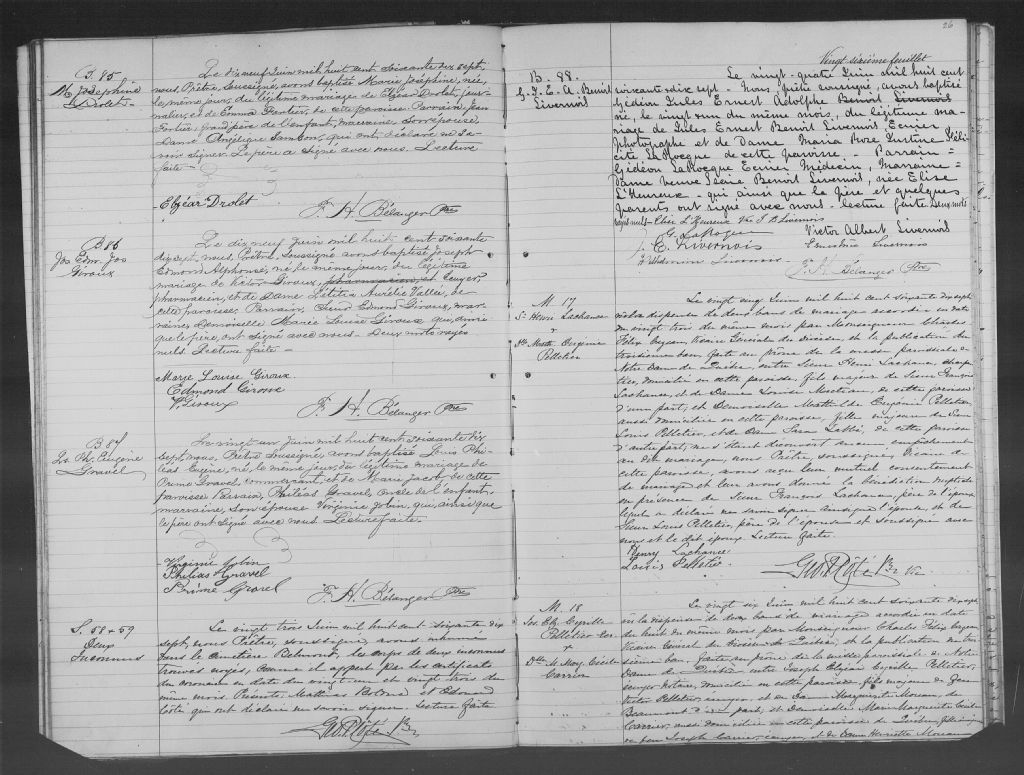 B. 85
M. Joséphine
Drolet
Le dix neuf juin mil huit cent soixante dix sept,
nous, Prêtre, soussigné, avons baptisé Marie Joséphine, née
le même jour, du légitime mariage de Elzéar Drolet, jour-
nalier, et de Emma Fortier, de cette paroisse. Parrain, Jean
Fortier, grand père de l'enfant, marraine, son épouse,
Dame Angélique Samson, qui ont déclaré ne sa-
voir signer. Le père a signé avec nous. Lecture
faite.
Elzéar Drolet
F. H. Bélanger Ptre
B 86
Jos Edm. Jos
Giroux
Le dix neuf juin mil huit cent soixante
dix sept, nous, Prêtre, soussigné, avons baptisé Joseph
Edmond Alphonse, né le même jour, du légitime
mariage de Victor Giroux, pharmacien, et Ecuyer,
pharmacien, et de Dame Létitia Aurélie Vallée, de
cette paroisse. Parrain, Sieur Edmond Giroux, mar-
raine, Demoiselle Marie Louise Giroux qui, ainsi
que le père, ont signé avec nous. Deux mots rayés
nuls. Lecture faite.
Marie Louise Giroux
Edmond Giroux
V. Giroux
F. H. Bélanger Ptre
B 87
Ls Ph. Eugène
Gravel
Le vingt un juin mil huit cent soixante dix
sept, nous, Prêtre, soussigné, avons baptisé Louis Phi-
léas Eugène, né le même jour, du légitime mariage de
Prime Gravel, commerçant, et de Marie Jacob, de cette
paroisse. Parrain, Philéas Gravel, oncle de l'enfant,
marraine, son épouse Virginie Jobin, qui, ainsi que
le père ont signé avec nous. Lecture faite.
Virginie Jobin
Philéas Gravel
Prime Gravel
F. H. Bélanger Ptre
S. 58 & 59
Deux
Inconnus
Le vingt trois Juin mil huit cent soixante dix
sept, nous, Prêtre, soussigné, avons inhumé
dans le cimetière Belmont, les corps de deux inconnus
trouvés noyés, comme il appert par les certificats
du coronaire en date du vingt un et vingt trois du
même mois. Présents Mathias et Edouard
Côté qui ont déclaré ne savoir signer. Lecture faite
Geo. P. Côté Ptre
26
Vingt sixième feuillet
B. 88.
G. J. E. A. Benoit
Livernois
Le vingt-quatre Juin mil huit cent
soixante dix sept. Nous prêtre soussigné, avons baptisé
Gédéon Jules Ernest Adolphe Benoit Livernois
né, le vingt un du même mois, du légitime ma-
riage de Jules Ernest Benoit Livernois, Ecuier
photographe et de Dame Maria Rose Justine Féli-
cité LaRocque de cette paroisse. Parrain =
Gédéon LaRocque Ecuier Médecin, Marraine =
Dame veuve Isaïe Benoit Livernois, née Elise
L'Heureux - qui ainsi que le père et quelques
parents ont signé avec nous - lecture faite deux mots
rayés nuls - Elise L'Heureux Vve I. B. Livernois
G. LaRocque
Victor Albert Livernois
E. Livernois
F. H. Bélanger Ptre
M. 17
Sr Henri Lachance
&
Dlle Matde Eugénie
Pelletier
Le vingt cinq Juin mil huit cent soixante dix sept
vu la dispense de deux bans de mariage accordée en date
du vingt trois du même mois par Monseigneur Charles
Félix Cazeau, Vicaire Général du diocèse, et la publication du
troisième ban faite au prône de la messe paroissiale de
Notre Dame de Québec, entre Sieur Henri Lachance charpen-
tier, domicilié en cette paroisse, fils majeur de Sieur François
Lachance, et de Dame Louise de cette paroisse
d'une part; et Demoiselle Mathilde Eugénie Pelletier,
aussi domiciliée en cette paroisse, fille majeure de Sieur
Louis Pelletier, et de Dame de cette paroisse
d'autre part; ne s'étant découvert aucun empêchement
au dit mariage, nous Prêtre, soussigné, Vicaire de
cette paroisse, avons reçu leur mutuel consentement
de mariage et leur avons donné la bénédiction nuptiale
en présence de Sieur François Lachance, père de l'époux
lequel a déclaré ne savoir signer ainsi que l'épouse, et de
Sieur Louis Pelletier, père de l'épouse et soussigné avec
nous et le dit époux. Lecture faite.
Henry Lachance
Louis Pelletier
Geo. P. Côté Ptre Vic
M. 18
Jos. Elz. Cyrille
Pelletier
&
Dlle M. Marg. Cécile
Carrier
Le vingt six Juin mil huit cent soixante dix sept
vu la dispense de deux bans de mariage accordée en date
du huit du même mois par Monseigneur Charles Félix Cazeau
Vicaire Général du diocèse de Québec et la publication du troi-
sième ban, faite au prône de la messe paroissiale de Notre
Dame de Québec entre Joseph Elzéar Cyrille Pelletier,
notaire, domicilié en cette paroisse fils majeur de
Victor Pelletier et de Dame Marguerite
Beaumont d'une part, et Demoiselle Marie Marguerite Cécile
Carrier, aussi domiciliée en cette paroisse de Québec, fille
de feu Joseph Carrier, et de Dame Henriette